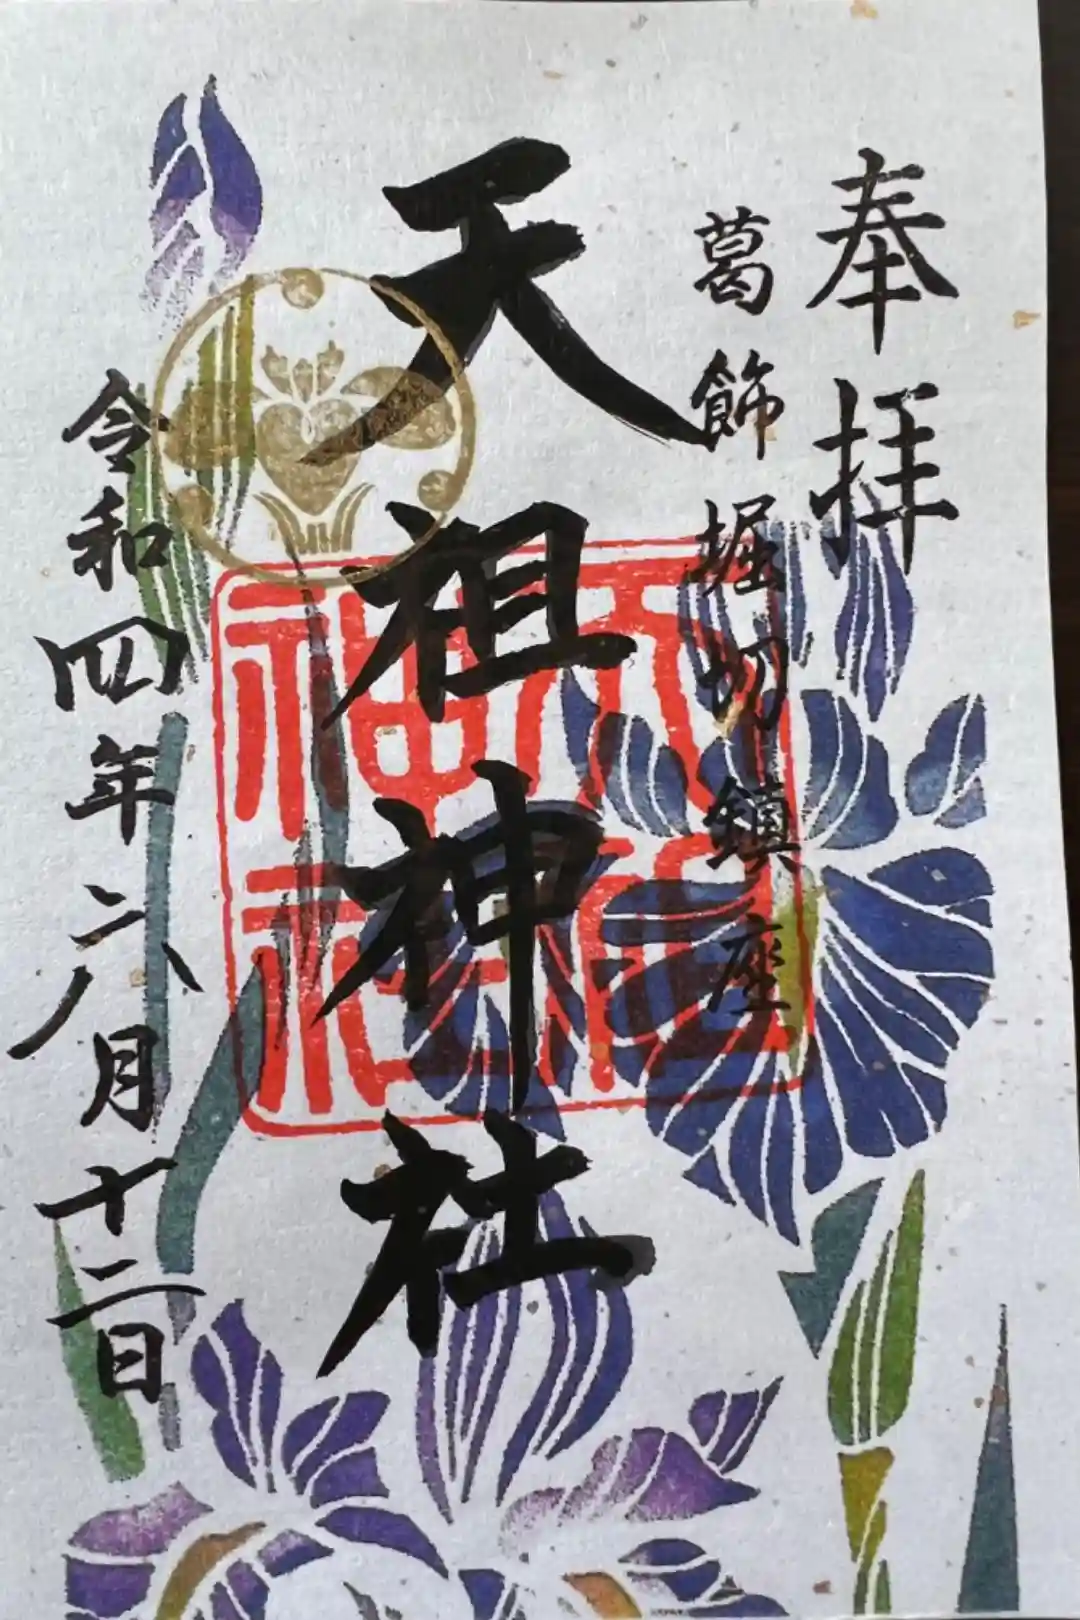 奉拝
葛飾堀切鎮座
天祖神社
天祖神社
令和四年六月十二日